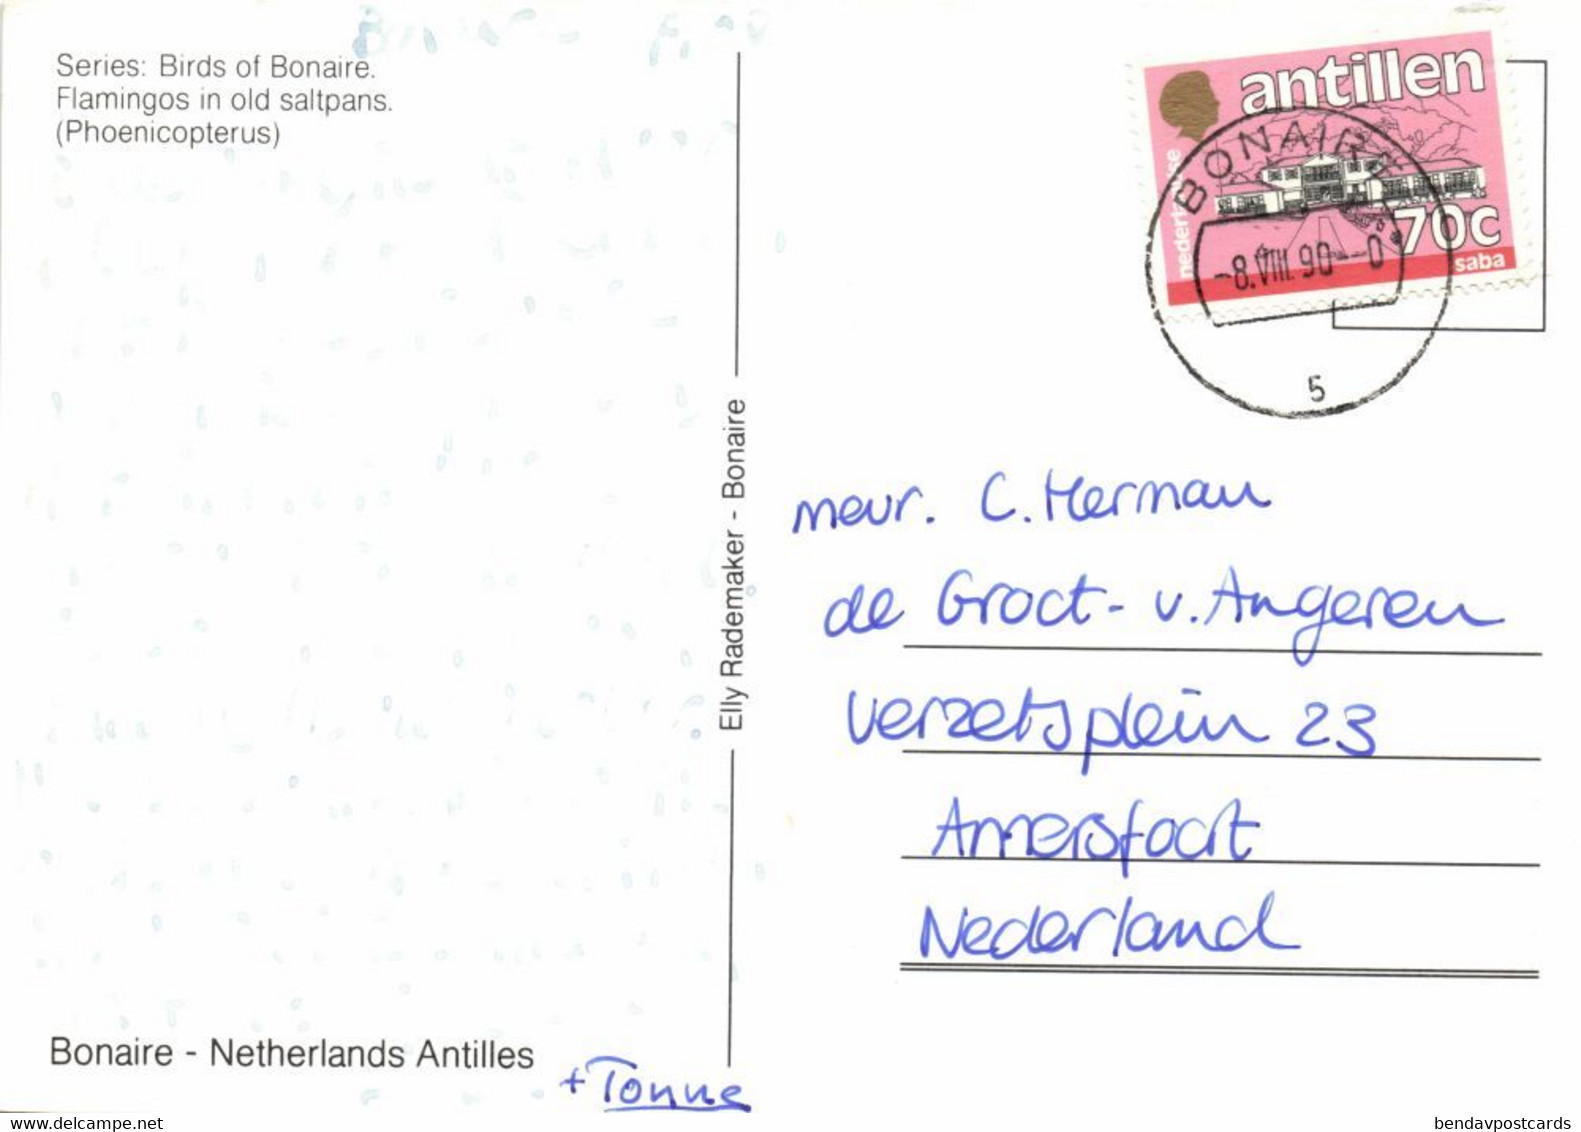 Series: Birds of Bonaire.
Flamingos in old saltpans.
(Phoenicopterus)
antillen
nederlandse
70c
saba
BONAIRE
-8.VIII.90--0
5
Elly Rademaker - Bonaire
mevr. C. Herman
de Groot - v. Angeren
Verzetsplein 23
Amersfoort
Nederland
Bonaire - Netherlands Antilles
+ Tonne
www.delcampe.net
bendavpostcards